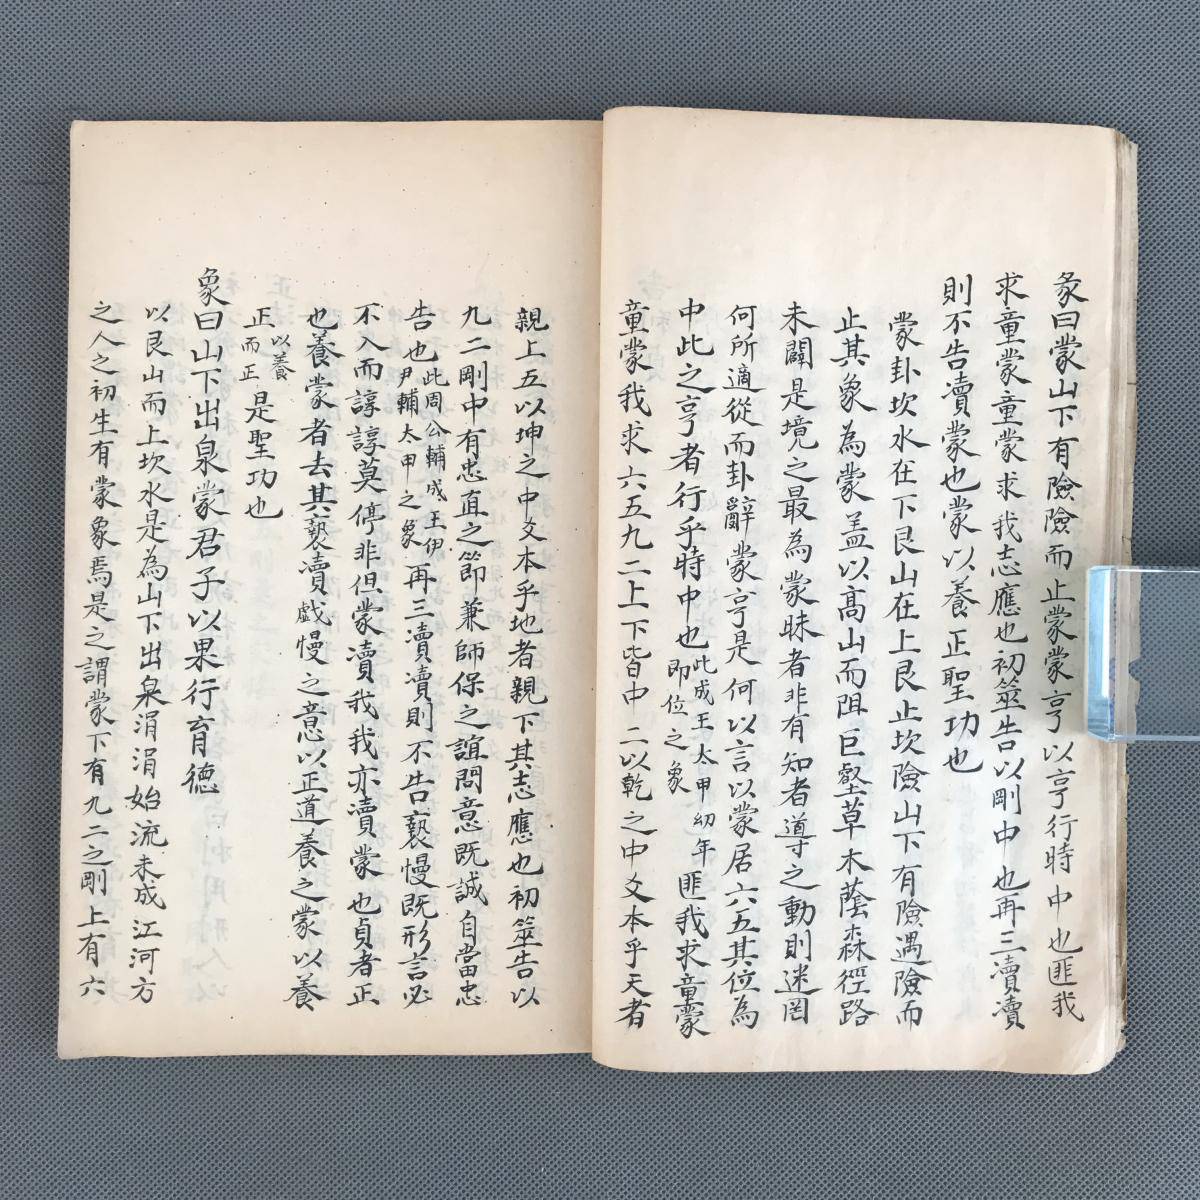 彖曰蒙山下有險險而止蒙蒙亨以亨行時中也匪我
求童蒙童蒙求我志應也初筮告以剛中也再三瀆瀆
則不告瀆蒙也蒙以養正聖功也
蒙卦坎水在下艮山在上艮止坎險山下有險遇險而
止其象為蒙盖以高山而阻巨壑草木蔭森徑路
未闢是境之最為蒙昧者非有知者導之動則迷罔
何所適從而卦辭蒙亨是何以言以蒙居六五其位為
中此之亨者行乎時中也此成王太甲幼年即位之象匪我求童蒙
童蒙我求六五九二上下皆中二以乾之中爻本乎天者
親上五以坤之中爻本乎地者親下其志應也初筮告以
九二剛中有忠直之節兼師保之誼問意既誠自當忠
告也此周公輔成王伊尹輔太甲之象再三瀆瀆則不告褻慢既形言必
不入而諄諄莫停非但蒙瀆我我亦瀆蒙也貞者正
也養蒙者去其褻瀆戯慢之意以正道養之蒙以養
正以養而正是聖功也
象曰山下出泉蒙君子以果行育德
以艮山而上坎水是為山下出泉涓涓始流未成江河方
之人之初生有蒙象焉是之謂蒙下有九二之剛上有六